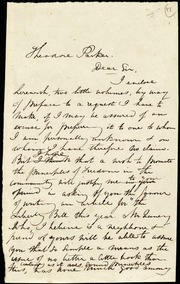 Theodore Parker.
Dear Sir,
I enclose
herewith, two little volumes, by way
of preface to a request I have to
make, if I may be assured of an
excuse for preferring it to one to whom
I am personally unknown & on
whom I have therefore no claims.
But I think that a wish to promote
the principles of freedom in the
community will justify me to your
mind in asking of you the favor
of writing an article for the
Liberty Bell this year
who I believe is a neighbor &
friend of yours will be able to assure
you that so simple a means as the
issue of so neat a little book than
this, has done much good among